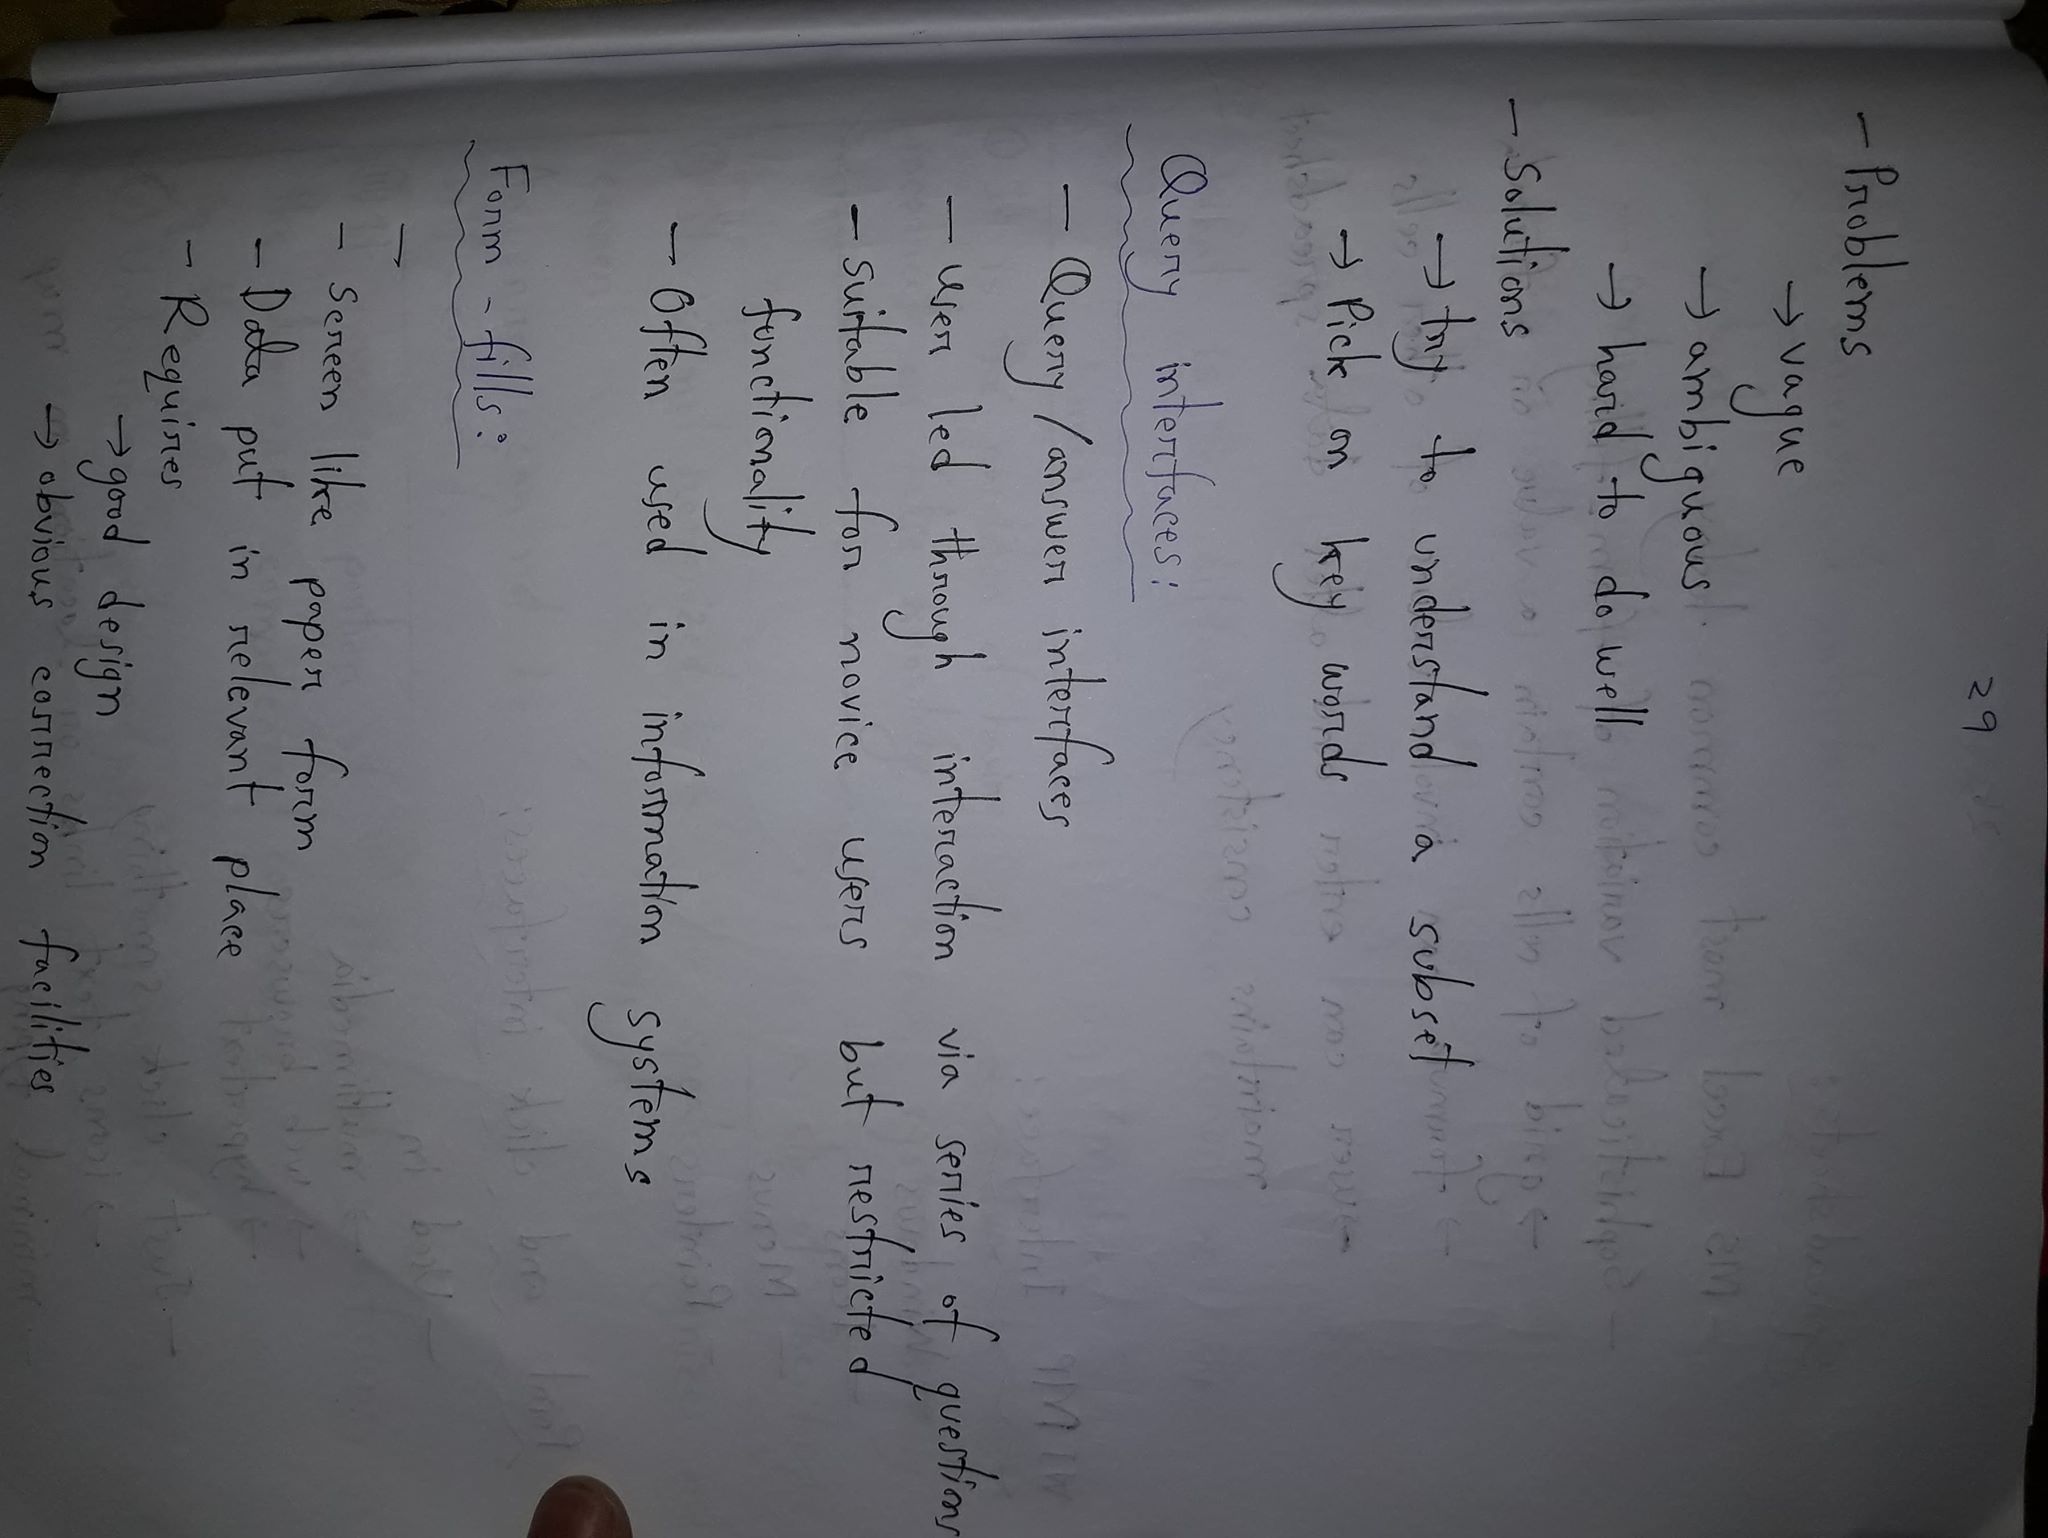 29
- Problems
→ vague
→ ambiguous
→ hard to do well
- Solutions
→ try to understand a subset
→ Pick on key words
Query interfaces:
- Query/answer interfaces
- User led through interaction via series of questions
- Suitable for novice users but restricted
functionality
- Often used in information systems
Form-fills:
-
- Screen like paper form
- Data put in relevant place
- Requires
→ good design
→ obvious correction facilities